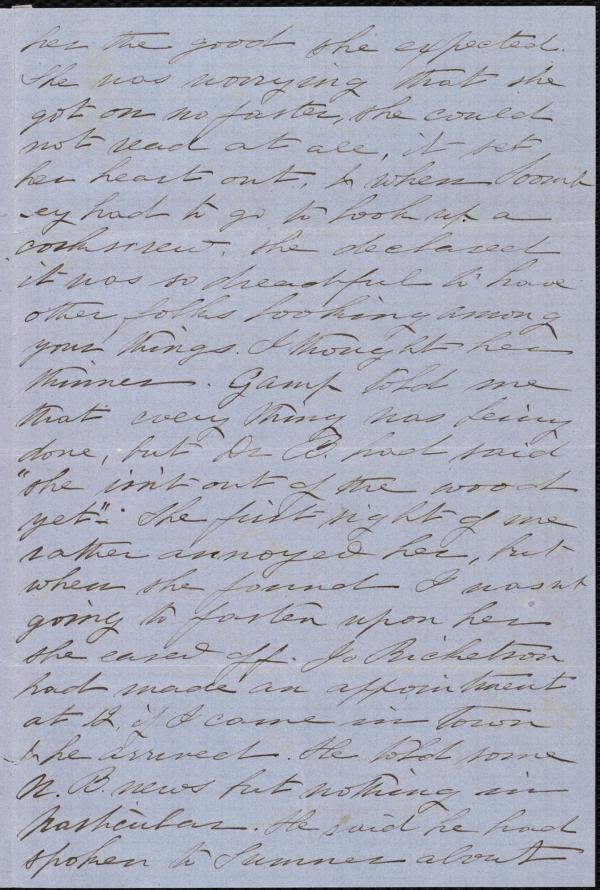 her the good she expected.
She was worrying that she
got on no faster, she could
not read at all, it set
her heart out, & when
-ey had to go to look up a
corkscrew, she declared
it was so dreadful to have
other folks looking among
your things. I thought her
thinner. Gamp told me
that every thing was being
done, but Dr B. had said
"she isn't out of the wood
yet". The first sight of me
rather annoyed her, but
when she found I wasn't
going to fasten upon her
she eased off. Jo Ricketson
had made an appointment
at 12, if I came in town
& he arrived. He told some
N. B. news but nothing in
particular. He said he had
spoken to Sumner about